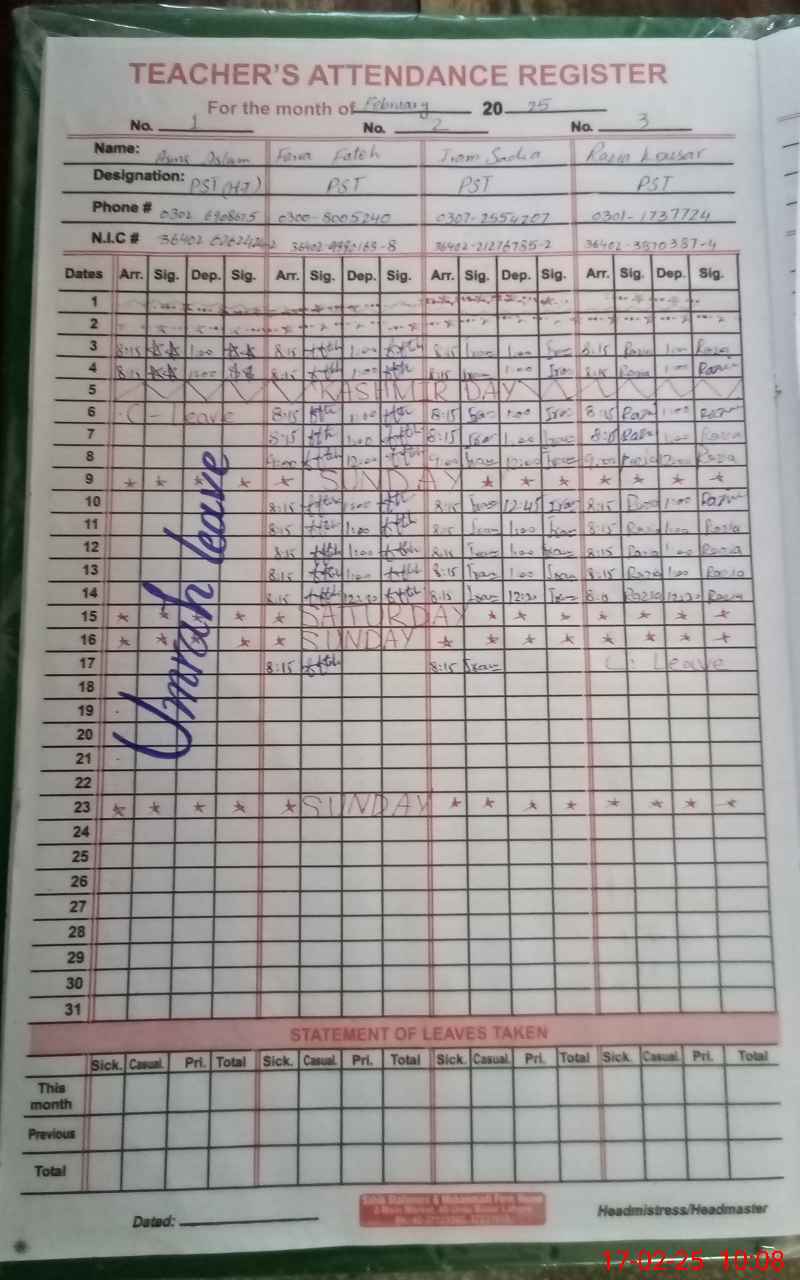 TEACHER'S ATTENDANCE REGISTER
For the month of February 20 25
No. 1 No. 2 No. 3
Name: Fateh Iram Sadia Razia Kousar
Designation: PST (HT) PST PST PST
Phone # 0300-8005240 0307-2554207 0301-1737724
N.I.C #
Dates Arr. Sig. Dep. Sig. Arr. Sig. Dep. Sig. Arr. Sig. Dep. Sig. Arr. Sig. Dep. Sig.
1
2
3 8:15 1:00 8:15 1:00 8:15 Iram 1:00 Iram 8:15 Razia 1:00 Razia
4 8:15 1:00 8:15 1:00 8:15 Iram 1:00 Iram 8:15 Razia 1:00 Razia
5 KASHMIR DAY
6 C - Leave 8:15 1:00 8:15 Iram 1:00 Iram 8:15 Razia 1:00 Razia
7 8:15 1:00 8:15 Iram 1:00 Iram 8:15 Razia 1:00 Razia
8 9:00 12:00 9:00 Iram 12:00 Iram 9:00 Razia 12:00 Razia
9 SUNDAY
10 8:15 1:00 8:15 Iram 12:45 Iram 8:15 Razia 1:00 Razia
11 8:15 1:00 8:15 Iram 1:00 Iram 8:15 Razia 1:00 Razia
12 8:15 1:00 8:15 Iram 1:00 Iram 8:15 Razia 1:00 Razia
13 8:15 1:00 8:15 Iram 1:00 Iram 8:15 Razia 1:00 Razia
14 8:15 12:30 8:15 Iram 12:30 Iram 8:15 Razia 12:30 Razia
15 SATURDAY
16 SUNDAY
17 8:15 8:15 Iram C: Leave
Umrah leave
18
19
20
21
22
23 SUNDAY
24
25
26
27
28
29
30
31
STATEMENT OF LEAVES TAKEN
Sick. Casual. Pri. Total Sick. Casual. Pri. Total Sick. Casual. Pri. Total Sick. Casual. Pri. Total
This month
Previous
Total
Dated: Headmistress/Headmaster
17-02-25 10:08